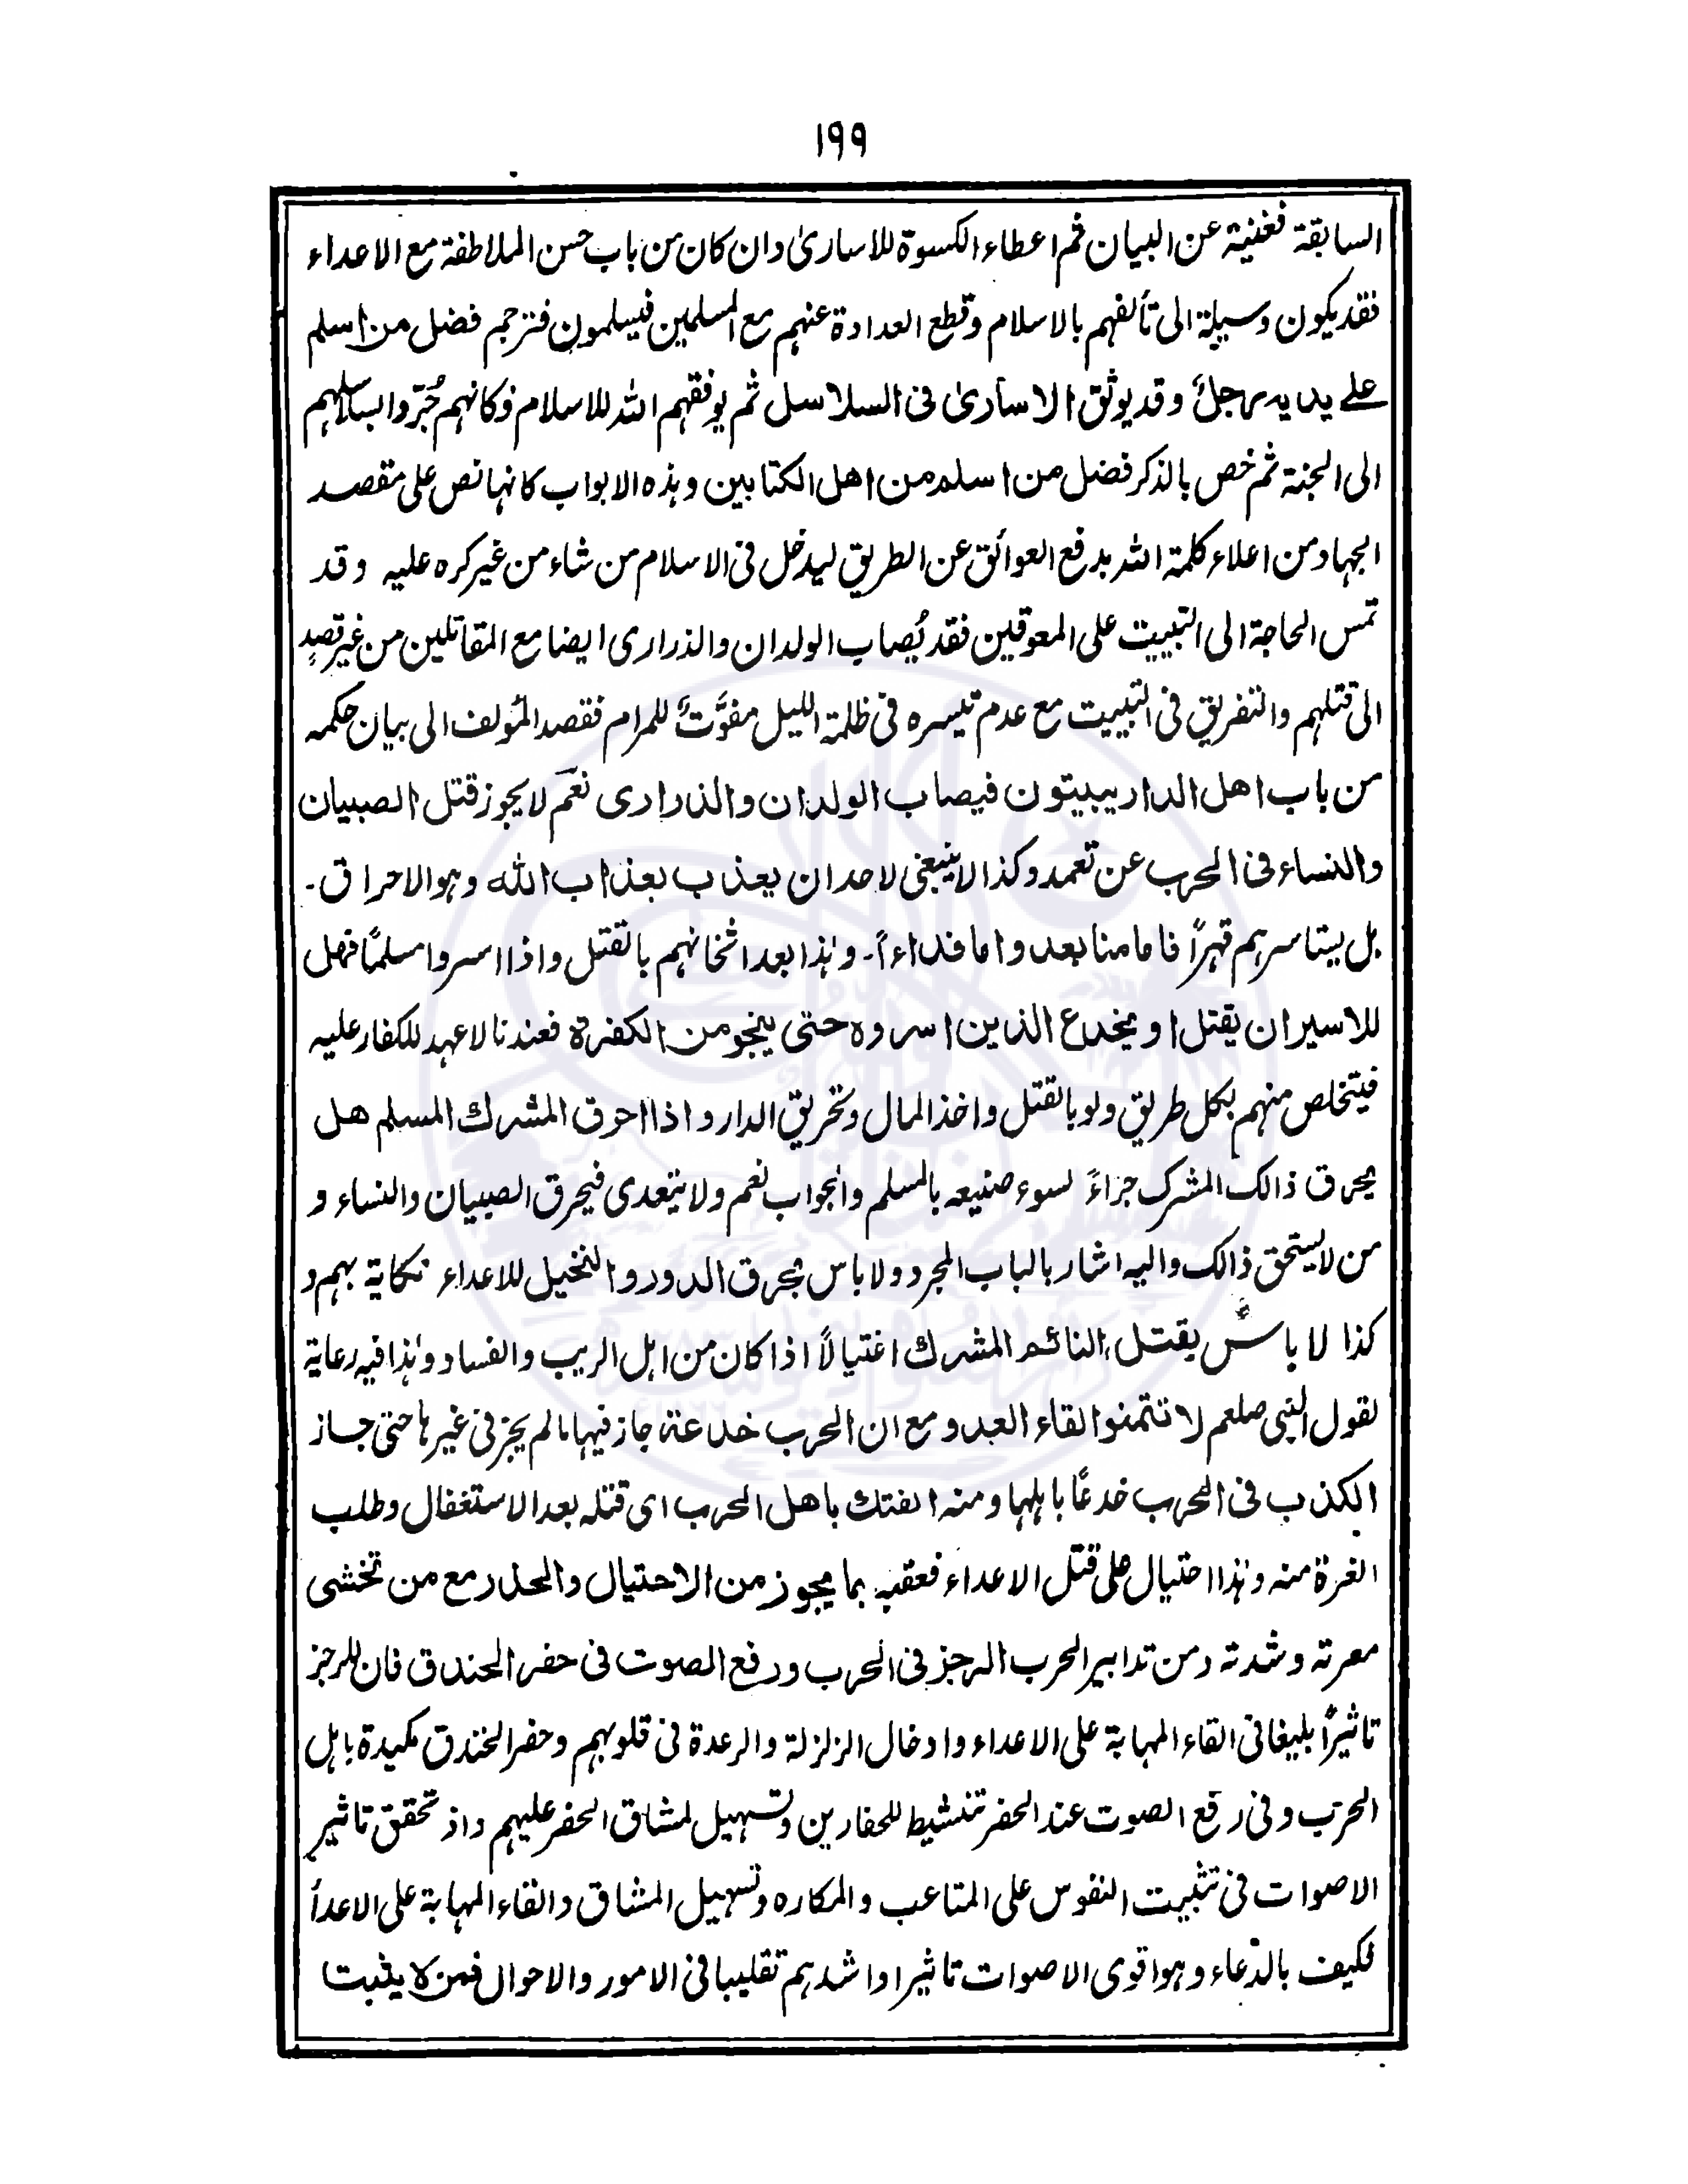 ١٩٩
السابقة فغنية عن البيان ثم اعطاء الكسوة للاسارىٰ وان كان من باب حسن الملاطفة مع الاعداء
فقد يكون وسيلة الى تألفهم بالاسلام وقطع العداوة عنهم مع المسلمين فيسلمون فترجم فضل من اسلم
على يديه رجلٌ وقد يوثق الاسارىٰ فى السلاسل ثم يوفقهم الله للاسلام فكانهم جُرّوا بسلاسلهم
الى الجنة ثم خص بالذكر فضل من اسلم من اهل الكتابين وهذه الابواب كانها نص على مقصد
الجهاد من اعلاء كلمة الله بدفع العوائق عن الطريق ليدخل فى الاسلام من شاء من غير كره عليه وقد
تمس الحاجة الى التبييت على المعوقين فقد يُصاب الولدان والذرارى ايضا مع المقاتلين من غير قصدٍ
الى قتلهم والتفريق فى التبييت مع عدم تيسره فى ظلمة الليل مفوّتٌ للمرام فقصد المؤلف الى بيان حكمه
من باب اهل الدار يبيتون فيصاب الولدان والذرارى نعم لا يجوز قتل الصبيان
والنساء فى الحرب عن تعمد وكذا لا ينبغى لاحد ان يعذب بعذاب الله وهو الاحراق۔
بل يستاسرهم قهراً فاما منا بعد واما فداءاً۔ وهٰذا بعد اثخانهم بالقتل واذا اسروا مسلمًا فهل
للاسير ان يقتل او يخدع الذين اسروه حتى ينجو من الكفرة فعندنا لا عهد للكفار عليه
فيتخلص منهم بكل طريق ولو بالقتل واخذ المال وتحريق الدار واذا احرق المشرك المسلم هل
يحرق ذالك المشرك جزاءً لسوء صنيعه بالمسلم والجواب نعم ولا يتعدى فيحرق الصبيان والنساء و
من لا يستحق ذالك واليه اشار بالباب المجرد ولا باس بحرق الدور والنخيل للاعداء نكاية بهم و
كذا لا باس بقتل النائم المشرك اغتيالاً اذا كان من اهل الريب والفساد وهٰذا فيه رعاية
لقول النبى صلعم لا تتمنوا لقاء العدو مع ان الحرب خدعة جاز فيها ما لم يجز فى غيرها حتى جاز
الكذب فى الحرب خدعًا باهلها ومنه الفتك باهل الحرب اى قتله بعد الاستغفال وطلب
الغرة منه وهٰذا احتيال على قتل الاعداء فعقبه بما يجوز من الاحتيال والحذر مع من تخشى
معرته وشدته ومن تدابير الحرب الرجز فى الحرب ورفع الصوت فى حفر الخندق فان للرجز
تاثيراً بليغا فى القاء المهابة على الاعداء وادخال الزلزلة والرعدة فى قلوبهم وحفر الخندق مكيدة باهل
الحرب وفى رفع الصوت عند الحفر تنشيط للحفارين وتسهيل لمشاق الحفر عليهم واذ تحقق تاثير
الاصوات فى تثبيت النفوس على المتاعب والمكاره وتسهيل المشاق والقاء المهابة على الاعدأ
فكيف بالدّعاء وهو اقوى الاصوات تاثيرا واشدهم تقليبا فى الامور والاحوال فمن لا يثبت